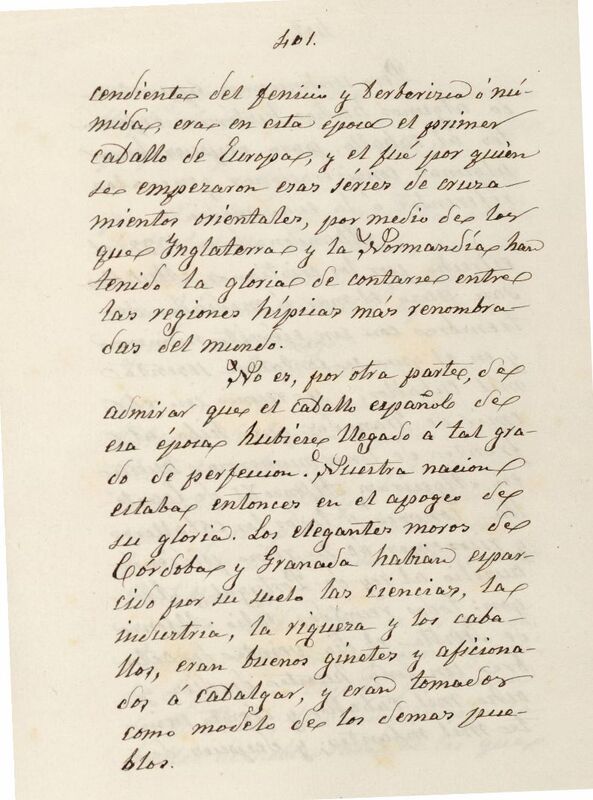 401.
cendiente del fenicio y Berberizco ó nú-
mida, era en esta época el primer
caballo de Europa, y el fué por quien
se empezaron esas séries de cruza-
mientos orientales, por medio de los
que Inglaterra y la Normandía han
tenido la gloria de contarse entre
las regiones hípicas más renombra-
das del mundo.
No es, por otra parte, de
admirar que el caballo español de
esa época hubiese llegado á tal gra-
do de perfeccion. Nuestra nacion
estaba entonces en el apogeo de
su gloria. Los elegantes moros de
Córdoba y Granada habian espar-
cido por su suelo las ciencias, la
industria, la riqueza y los caba-
llos, eran buenos ginetes y aficiona-
dos á cabalgar, y eran tomados
como modelo de los demas pue-
blos.